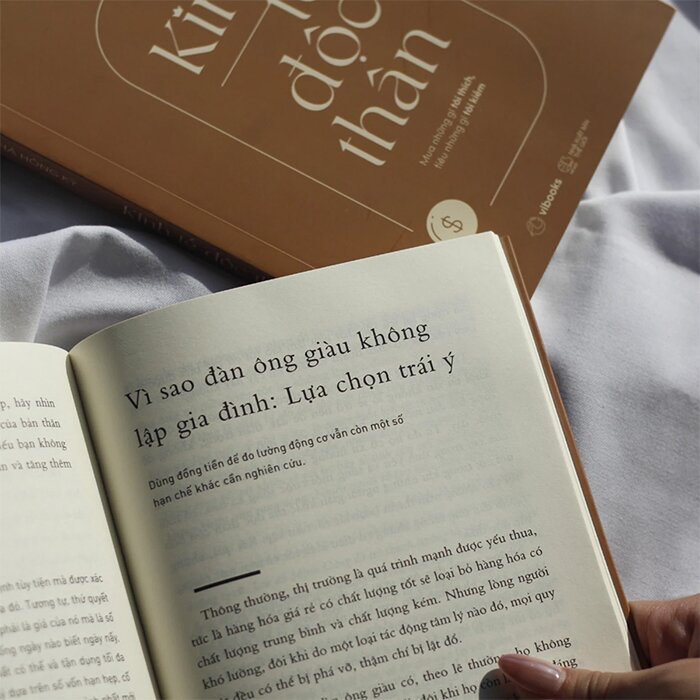 độc
thân
Mua những gì tôi thích,
tiêu những gì tôi kiếm
vibooks
Vì sao đàn ông giàu không
lập gia đình: Lựa chọn trái ý
Dùng đồng tiền để đo lường động cơ vẫn còn một số
hạn chế khác cần nghiên cứu.
Thông thường, thị trường là quá trình mạnh được yếu thua,
tức là hàng hóa giá rẻ có chất lượng tốt sẽ loại bỏ hàng hóa có
chất lượng trung bình và chất lượng kém. Nhưng lòng người
khó lường, đôi khi do một loại tác động tâm lý nào đó, mọi quy
đều có thể bị phá vỡ, thậm chí bị lật đổ.
ông giàu có, theo lẽ thường họ không
đôi khi họ
hãy nhìn
của bản thân
bạn không
và tăng thêm
tùy tiện mà được xác
đó. Tương tự, thứ quyết
phải là giá của nó mà là số
ngày nào biết ngày nấy.
có thể và tận dụng tối đa
dựa trên số vốn hạn hẹp, cố